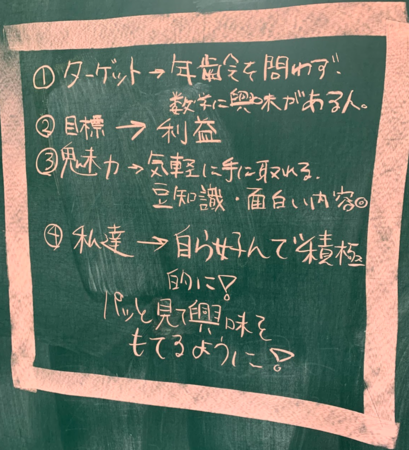 ①ターゲット→年齢を問わず、
数学に興味がある人。
②目標→利益
③魅力→気軽に手に取れる、
豆知識・面白い内容◎
④私達→自ら好んで積極
的に!
パッと見て興味を
もてるように!